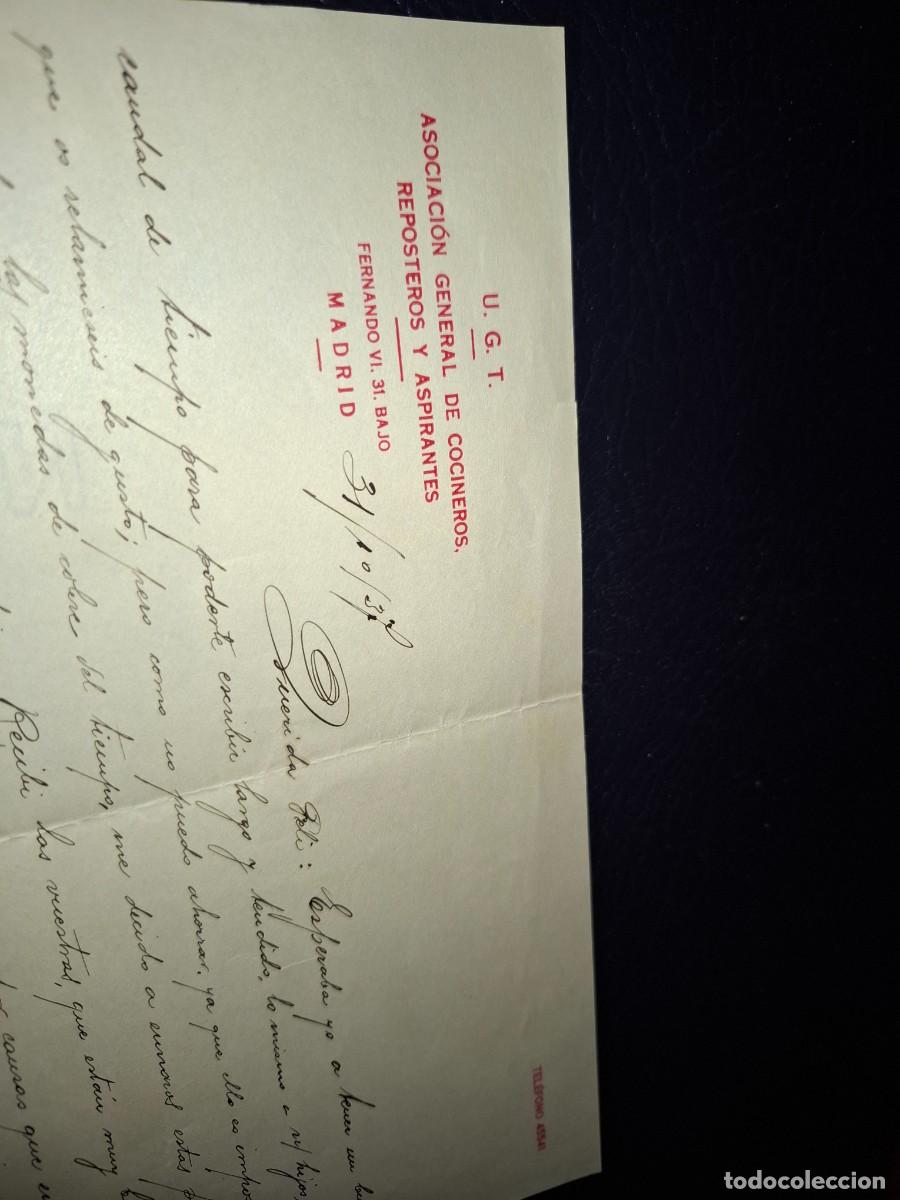 U. G. T.
ASOCIACIÓN GENERAL DE COCINEROS,
REPOSTEROS Y ASPIRANTES
FERNANDO VI. 31. BAJO
MADRID
TELÉFONO 45541
31/10/37
Querida Poli: Esperaba yo a tener un
caudal de tiempo para poderte escribir largo y tendido, lo mismo a tus hijos,
que os relamieseis de gusto; pero como no puedo ahorrar, ya que ello es
las monedas de cobre del tiempo, me decido a enviaros estas
Recibi las vuestras, que están muy
causas que
todocoleccion